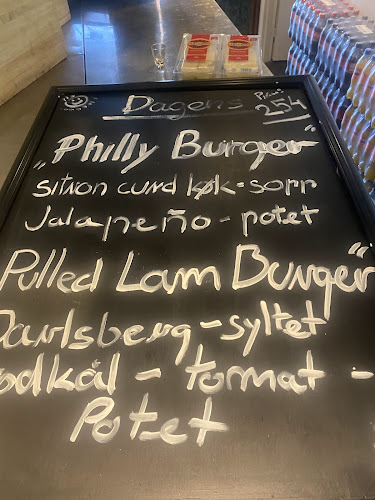 Dagens
Pris:
254
"Philly Burger"
sitron curd løk-sopp
Jalapeño-potet
Pulled Lam Burger"
Jarlsberg-syltet
rødkål - tomat -
Potet